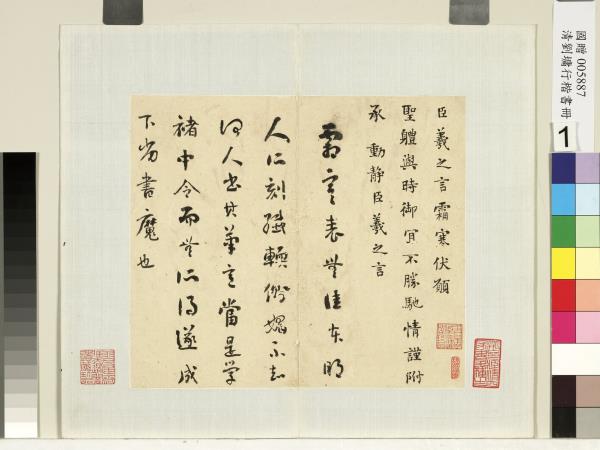 國贈 005887
清劉墉行楷書冊
1
臣羲之言霜寒伏願
聖體與時御宜不勝馳情謹附
承 動靜臣羲之言
霜寒表無佳本明
人所刻殊輭媚不知
何人書其筆意當是学
褚中令而無所得遂成
下劣書魔也